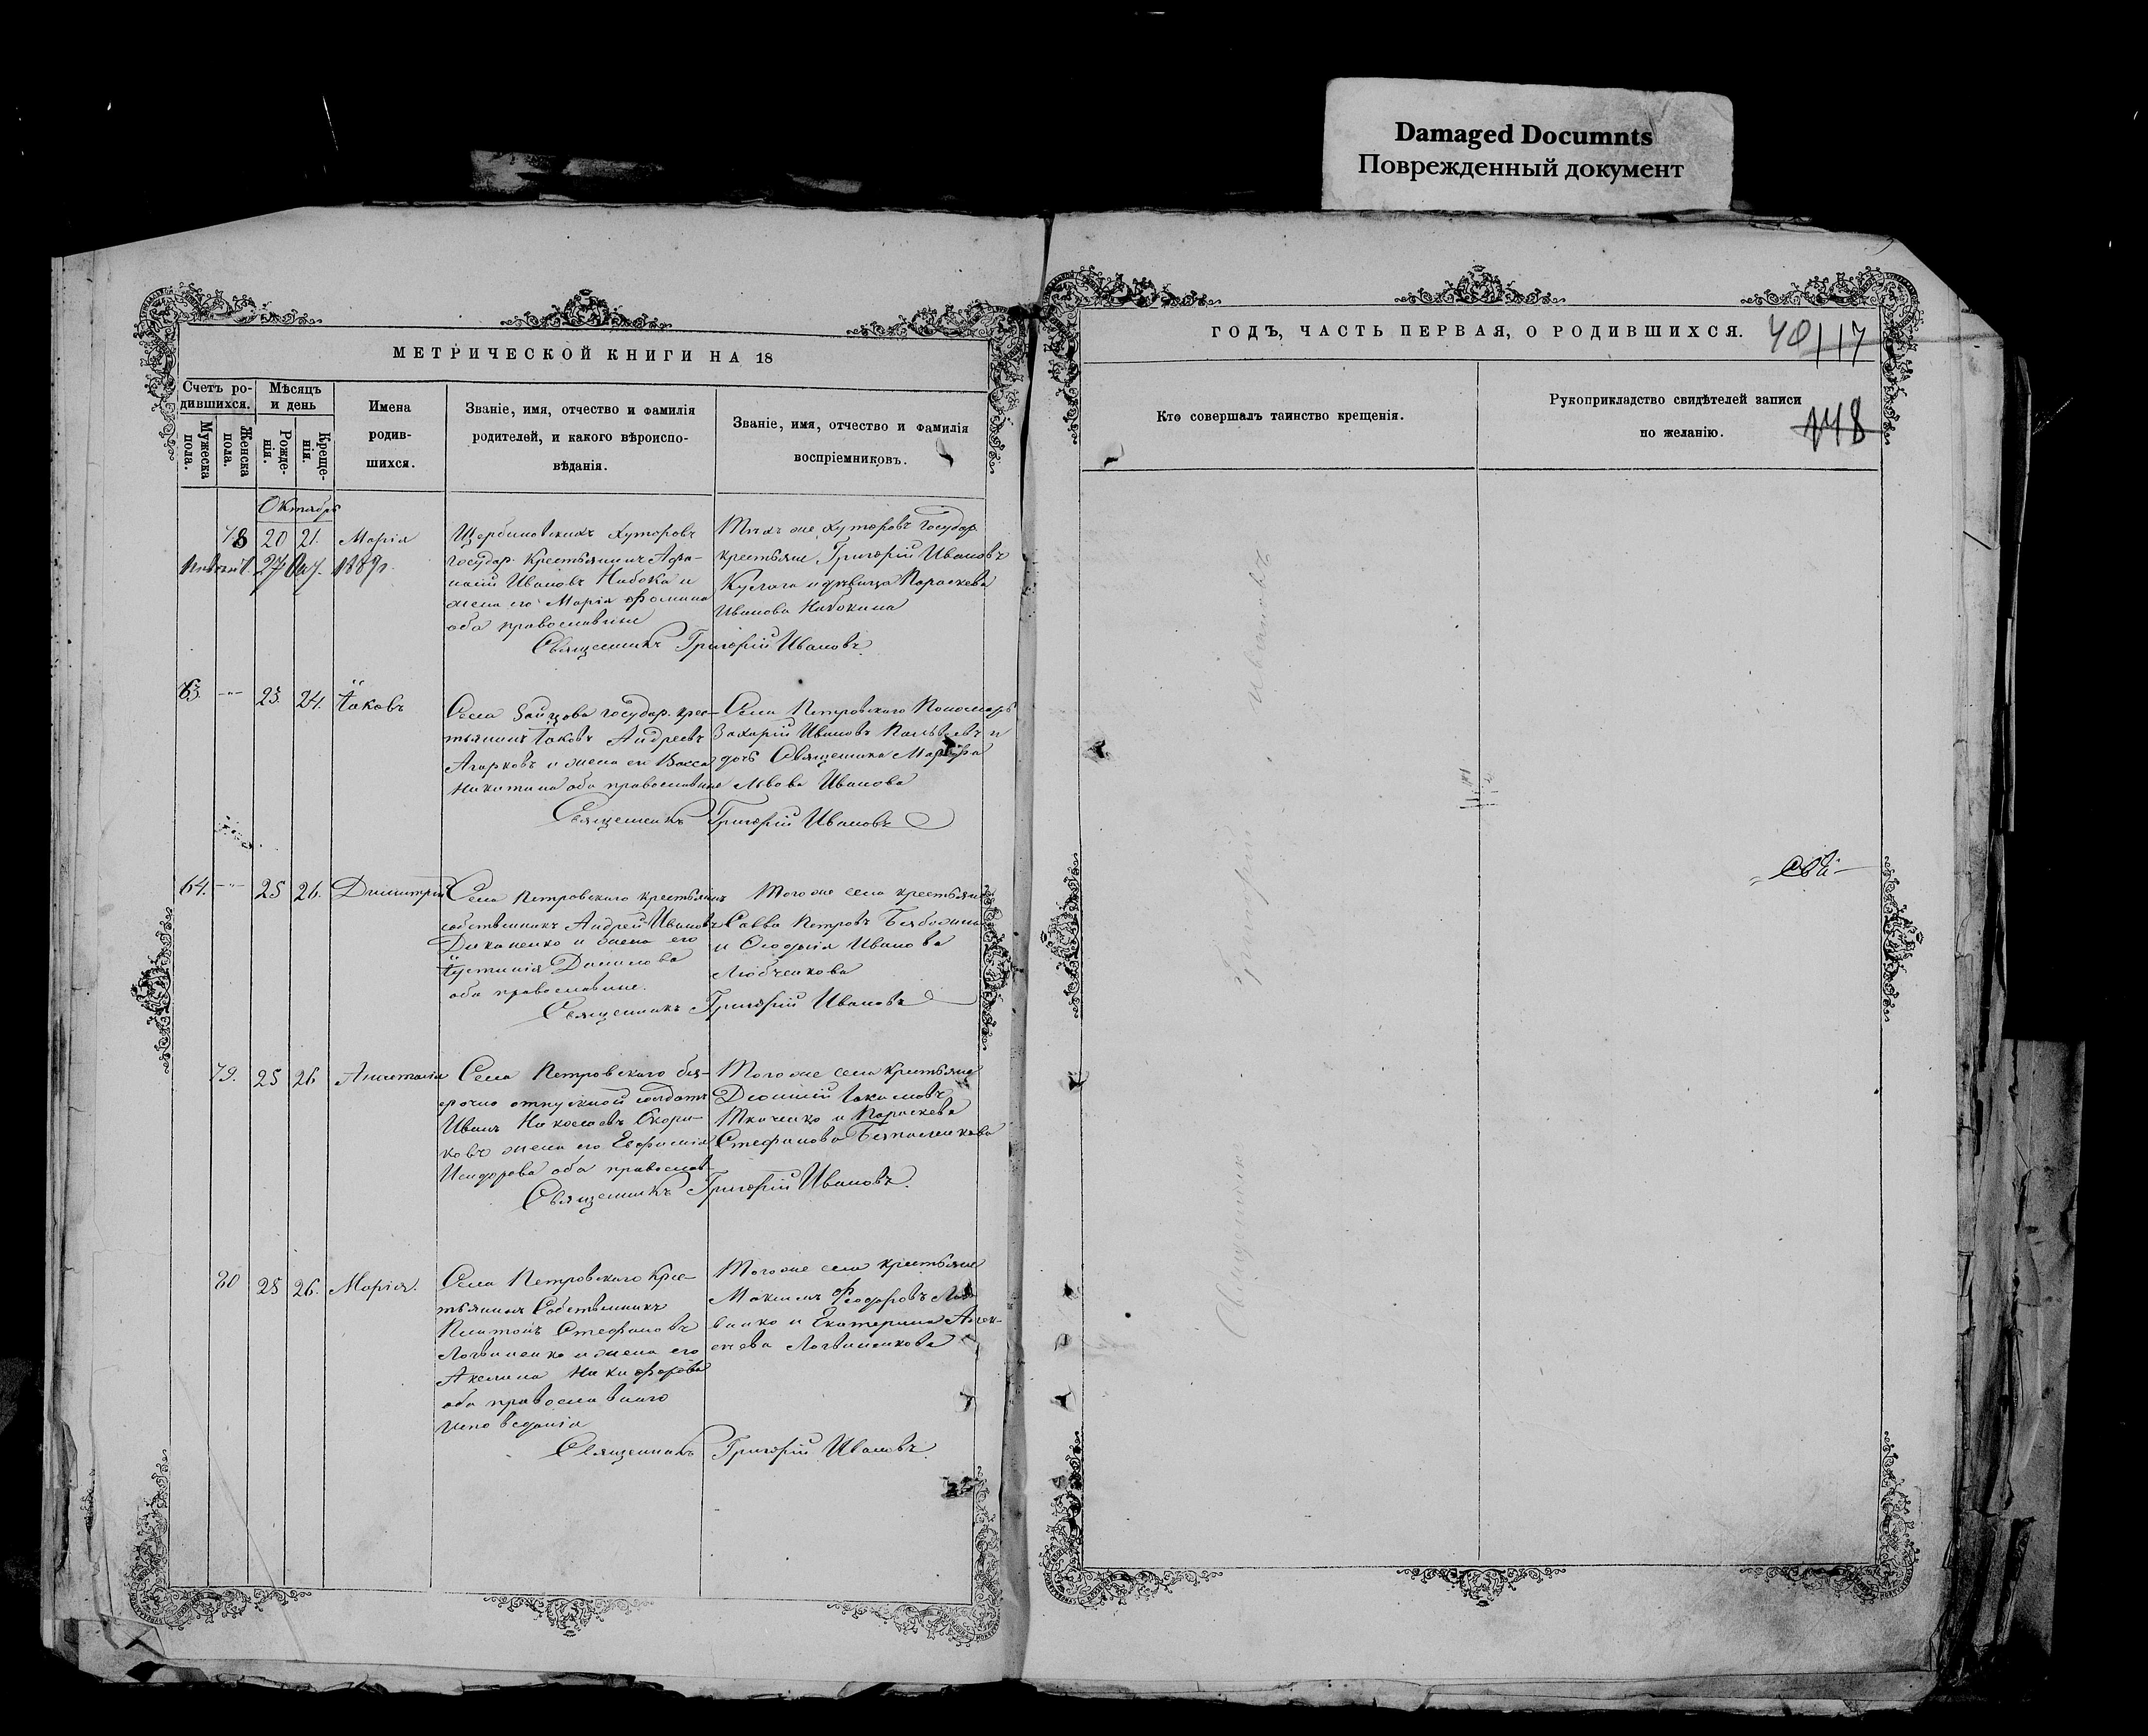 Damaged Documnts
Поврежденный документ
МЕТРИЧЕСКОЙ КНИГИ НА 18
Счетъ ро-
дившихся.
Мѣсяцъ
и день
Мужеска
пола.
Женска
пола.
Рожде-
нія.
Креще-
нія.
Имена
родив-
шихся.
Званіе, имя, отчество и фамилія
родителей, и какого вѣроиспо-
вѣданія.
Званіе, имя, отчество и фамилія
воспріемниковъ.
Октябрь
78 20 21. Марія
27 1889.
Щербиновскихъ хуторовъ
государ. крестьянинъ Афа-
насій Ивановъ Набока и
жена его Марія Фомина
оба православные
Тѣхъ же хуторовъ государ.
крестьяне Григорій Ивановъ
и дѣвица Параскева
Иванова Набокина
Священникъ Григорій Ивановъ
63. 23. 24. Іаковъ
Села Зайцова государ. крес-
тьянинъ Іаковъ Андреевъ
Агарковъ и жена его Васса
Никитина оба православные
Села Петровского Пономарь
Захарій Ивановъ и
дочь Священика Марфа
Львова Иванова
Священникъ Григорій Ивановъ
64. 25 26. Димитрій
Села Петровского крестьянинъ
собственникъ Андрей Ивановъ
Диканенко и жена его
Іустинія Данилова
оба православные.
Того же села крестьяне
Савва Петровъ
и Феодосія Иванова
Любченкова
Священникъ Григорій Ивановъ
79. 25 26 Анастасія
Села Петровского без-
срочно отпускной солдатъ
Иванъ Николаевъ Скори-
ковъ жена его Евфимія
Исидорова оба православ-
Того же села крестьяне
Діонисій Іакимовъ
Ткаченко и Параскева
Стефанова
Священникъ Григорій Ивановъ.
80 25 26. Марія.
Села Петровского крес-
тьянинъ Собственникъ
Платонъ Стефановъ
Логвиненко и жена его
Акелина Никифорова
оба православнаго
исповеданія
Того же села крестьяне
Максимъ Феодоровъ
и Екатерина Алек-
сеева Логвиненкова
Священникъ Григорій Ивановъ.
ГОДЪ, ЧАСТЬ ПЕРВАЯ, О РОДИВШИХСЯ.
40/17
Кто совершалъ таинство крещенія.
Рукоприкладство свидѣтелей записи
по желанію.
148
Священникъ Григорій Ивановъ